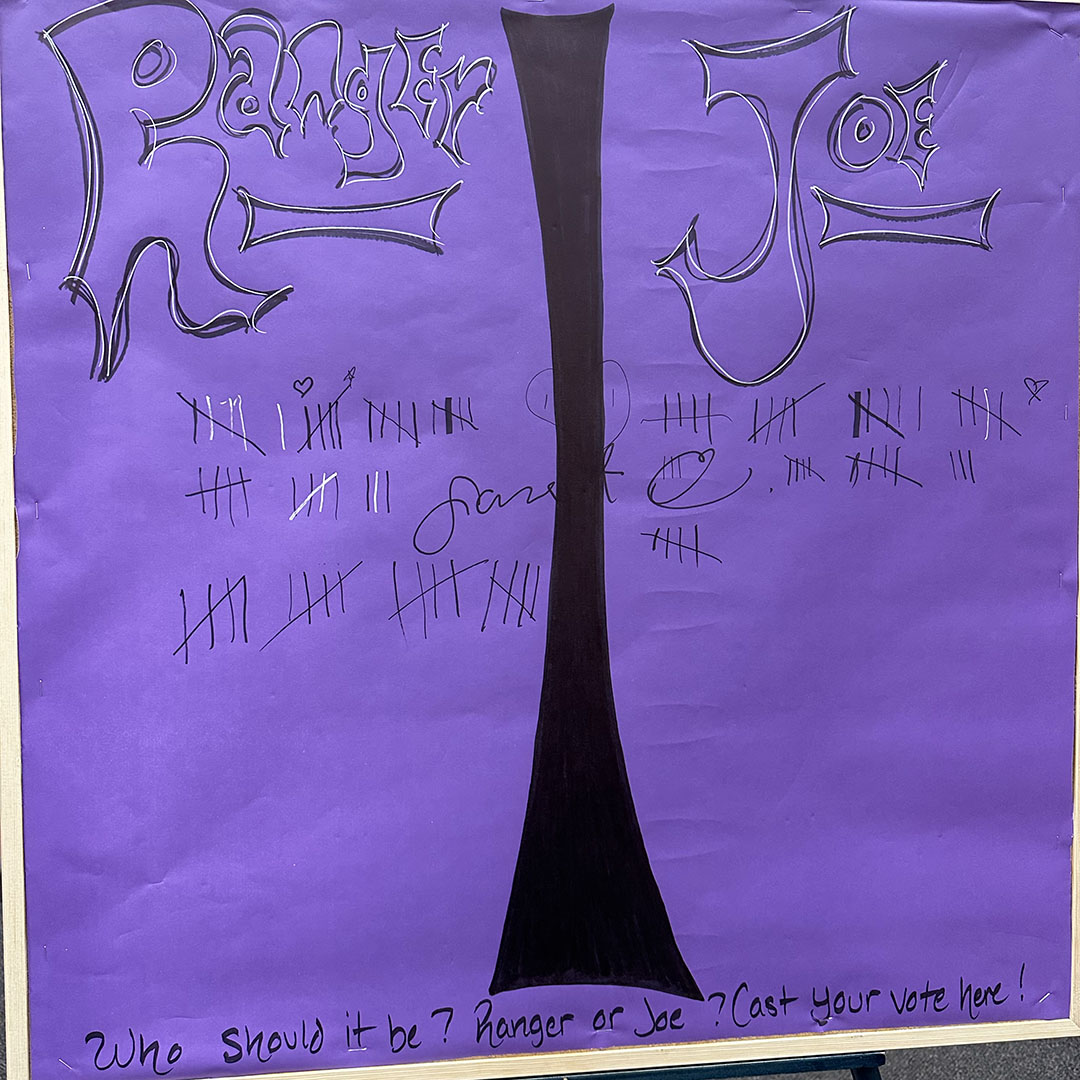 Ranger Joe
Who should it be? Ranger or Joe? Cast your vote here!